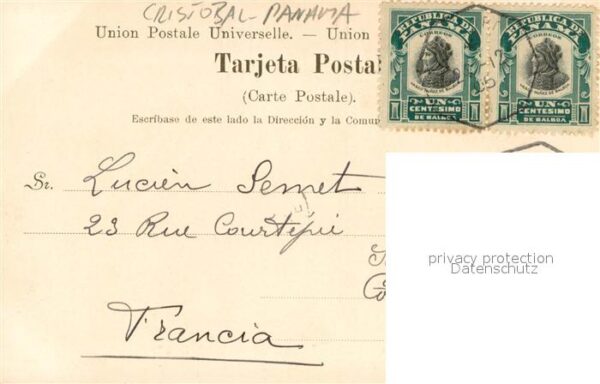 CRISTOBAL-PANAMA
Union Postale Universelle. — Union
Tarjeta Postal
(Carte Postale).
Escríbase de este lado la Dirección y la Comun
REPUBLICA DE PANAMA
CORREOS
VASCO NUÑEZ DE BALBOA
1 UN 1
CENTESIMO
DE BALBOA
REPUBLICA DE PANAMA
CORREOS
VASCO NUÑEZ DE BALBOA
1 UN 1
CENTESIMO
DE BALBOA
Sr. Lucien Semet
23 Rue Courtépié
Francia
privacy protection
Datenschutz